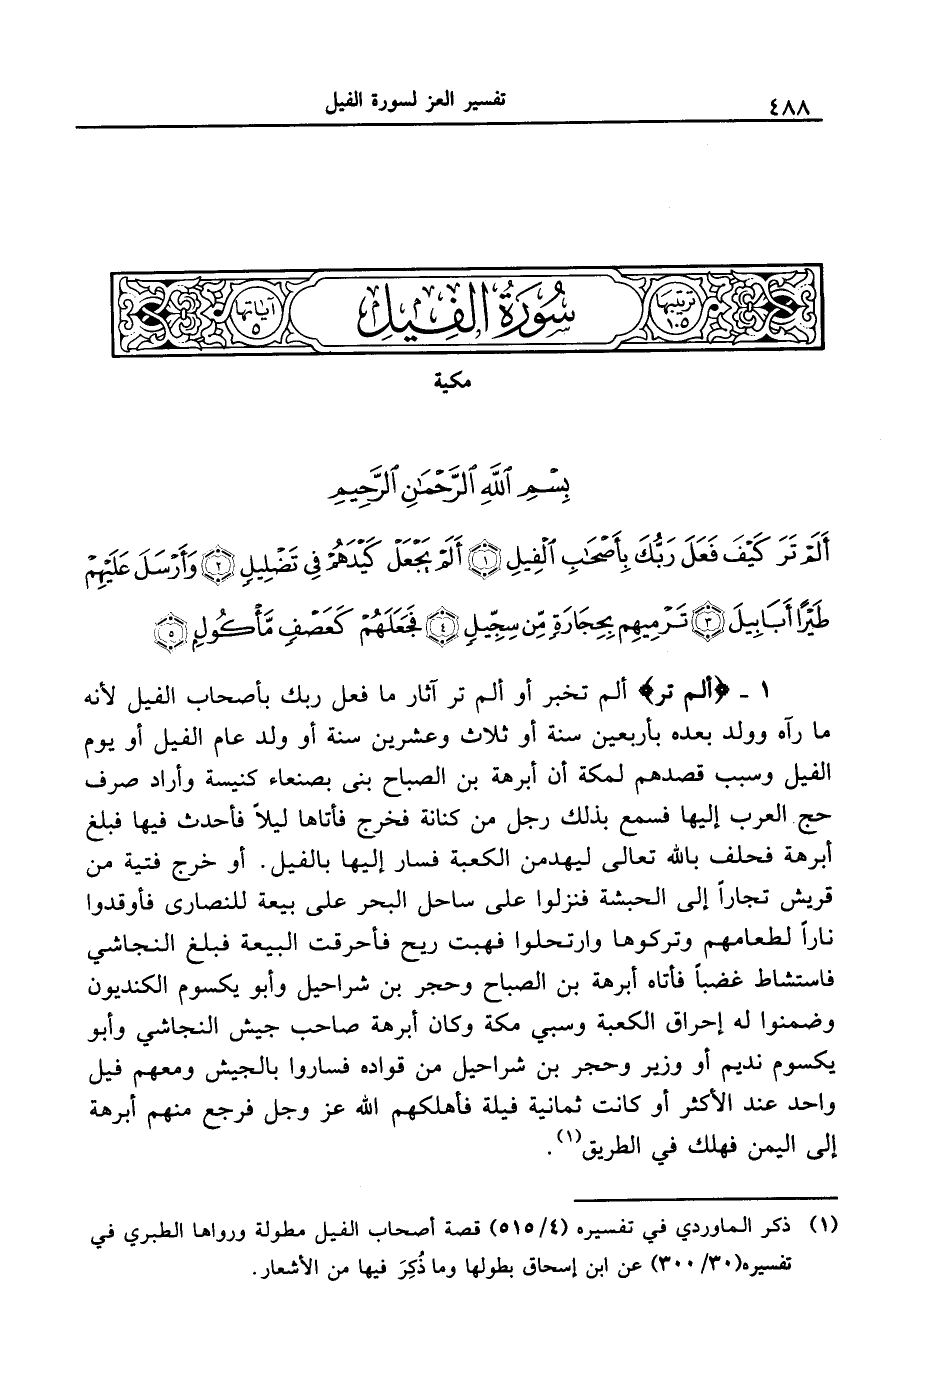 ٤٨٨
تفسير العز لسورة الفيل
ترتيبها ١٠٥
سُورَةُ الفِيلِ
آياتها ٥
مكية
بِسْمِ اللَّهِ الرَّحْمَٰنِ الرَّحِيمِ
أَلَمْ تَرَ كَيْفَ فَعَلَ رَبُّكَ بِأَصْحَابِ الْفِيلِ ١ أَلَمْ يَجْعَلْ كَيْدَهُمْ فِي تَضْلِيلٍ ٢ وَأَرْسَلَ عَلَيْهِمْ
طَيْرًا أَبَابِيلَ ٣ تَرْمِيهِم بِحِجَارَةٍ مِّن سِجِّيلٍ ٤ فَجَعَلَهُمْ كَعَصْفٍ مَّأْكُولٍ ٥
١ - ﴿ألم تر﴾ ألم تخبر أو ألم تر آثار ما فعل ربك بأصحاب الفيل لأنه
ما رآه وولد بعده بأربعين سنة أو ثلاث وعشرين سنة أو ولد عام الفيل أو يوم
الفيل وسبب قصدهم لمكة أن أبرهة بن الصباح بنى بصنعاء كنيسة وأراد صرف
حج العرب إليها فسمع بذلك رجل من كنانة فخرج فأتاها ليلاً فأحدث فيها فبلغ
أبرهة فحلف بالله تعالى ليهدمن الكعبة فسار إليها بالفيل. أو خرج فتية من
قريش تجاراً إلى الحبشة فنزلوا على ساحل البحر على بيعة للنصارى فأوقدوا
ناراً لطعامهم وتركوها وارتحلوا فهبت ريح فأحرقت البيعة فبلغ النجاشي
فاستشاط غضباً فأتاه أبرهة بن الصباح وحجر بن شراحيل وأبو يكسوم الكنديون
وضمنوا له إحراق الكعبة وسبي مكة وكان أبرهة صاحب جيش النجاشي وأبو
يكسوم نديم أو وزير وحجر بن شراحيل من قواده فساروا بالجيش ومعهم فيل
واحد عند الأكثر أو كانت ثمانية فيلة فأهلكهم الله عز وجل فرجع منهم أبرهة
إلى اليمن فهلك في الطريق(١).
(١) ذكر الماوردي في تفسيره (٥١٥/٤) قصة أصحاب الفيل مطولة ورواها الطبري في
تفسيره(٣٠٠/٣٠) عن ابن إسحاق بطولها وما ذُكِرَ فيها من الأشعار.